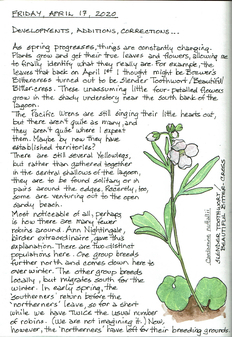 FRIDAY, APRIL 17, 2020
DEVELOPMENTS, ADDITIONS, CORRECTIONS...
As spring progresses, things are constantly changing.
Plants grow and get their true leaves and flowers, allowing me
to finally identify what they really are. For example, the
leaves that back on April 1st I thought might be Brewer's
Bittercress turned out to be Slender Toothwort / Beautiful
Bitter-cress. These unassuming little four-petalled flowers
grow in the shady understory near the south bank of the
lagoon.
The Pacific Wrens are still singing their little hearts out,
but there aren't quite as many, and
they aren't quite where I expect
them. Maybe by now they have
established territories?
There are still several Yellowlegs,
but rather than gathered together
in the central shallows of the lagoon,
they are to be found solitary or in
pairs around the edges. Recently, too,
some are venturing out to the open
sandy beach.
Most noticeable of all, perhaps
is how there are many fewer
robins around. Ann Nightingale,
birder extraordinaire, gave this
explanation. There are two distinct
populations here. One group breeds
further north and comes down here to
over winter. The other group breeds
locally, but migrates south for the
winter. In early spring, the
southerners return before the
'northerners' leave, so for a short
while we have twice the usual number
of robins. (We are not imagining it.) Now,
however, the 'northerners' have left for their breeding grounds.
Cardamine nuttallii
SLENDER TOOTHWORT
BEAUTIFUL BITTER-CRESS